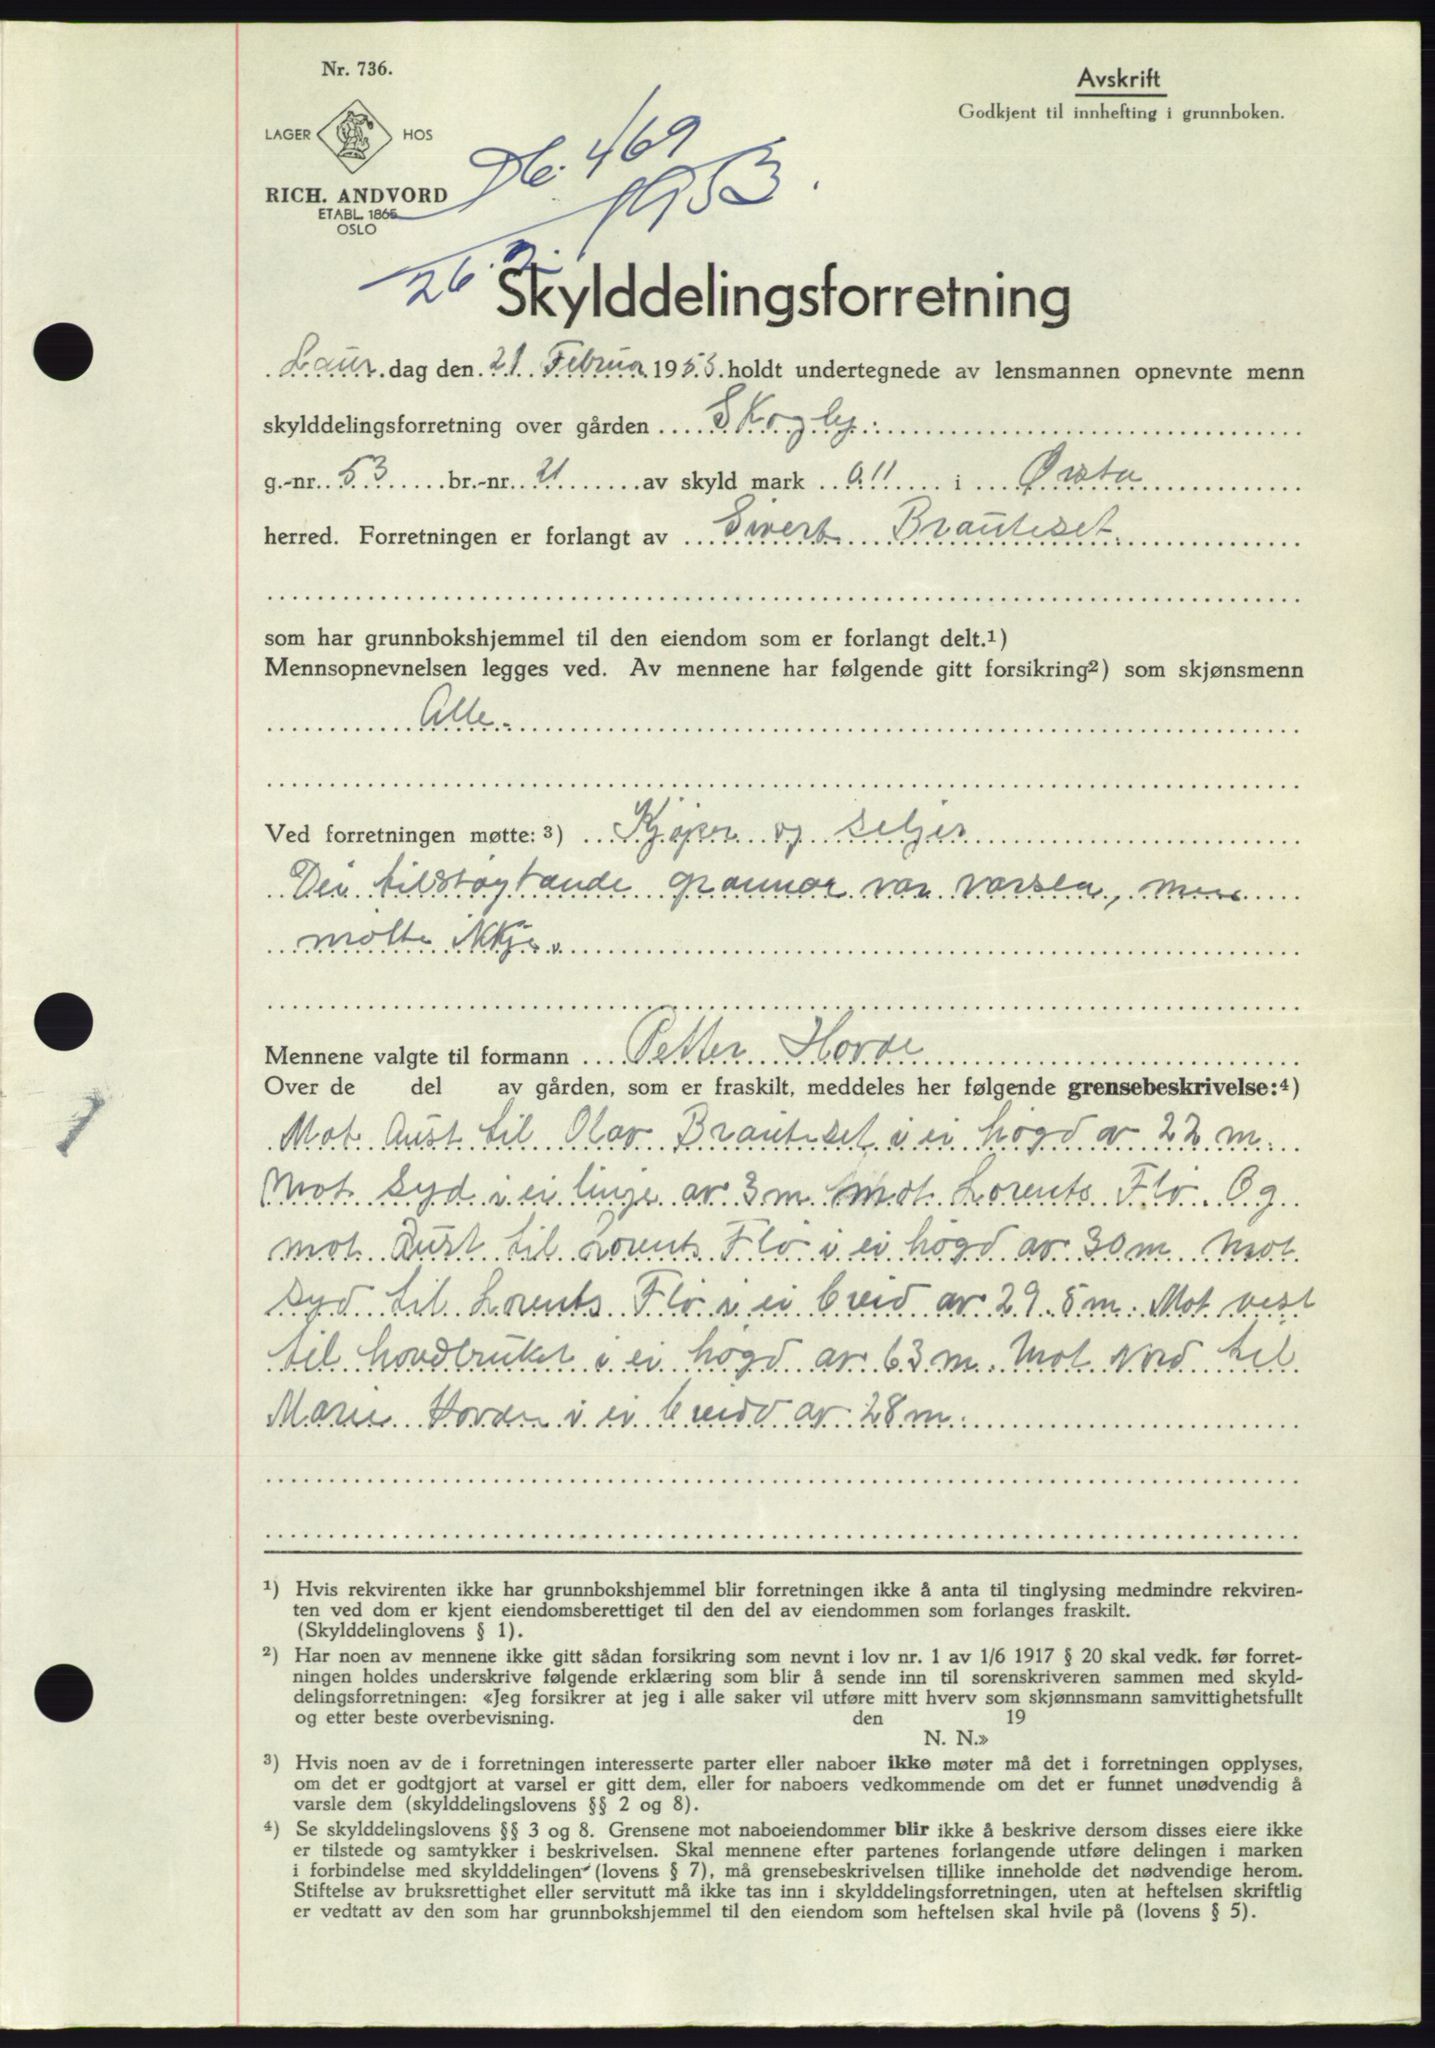 Nr. 736.
Avskrift
Godkjent til innhefting i grunnboken.
LAGER HOS
RICH. ANDVORD
ETABL. 1865
OSLO
Db. 469
26.2. 1953.
Skylddelingsforretning
Laur dag den 21 Februar 1953 holdt undertegnede av lensmannen opnevnte menn
skylddelingsforretning over gården Skogly.
g.-nr. 53 br.-nr. 21 av skyld mark 0.11 i Ørsta
herred. Forretningen er forlangt av Sivert Brauteset.
som har grunnbokshjemmel til den eiendom som er forlangt delt.1)
Mennsopnevnelsen legges ved. Av mennene har følgende gitt forsikring2) som skjønsmenn
Alle.
Ved forretningen møtte: 3) Kjøper og seljer
Dei tilstøytande grannar var varsla, men
møtte ikkje.
Mennene valgte til formann Petter Hovde
Over de del av gården, som er fraskilt, meddeles her følgende grensebeskrivelse:4)
Mot Aust til Olav Brauteset i ei høgd av 22 m.
Mot Syd i ei linje av 3 m mot Lorents Flø. Og
mot Aust til Lorents Flø i ei høgd av 30 m Mot
syd til Lorents Flø i ei breid av 29.5 m. Mot vest
til hovdbruket i ei høgd av 63 m. Mot Nord til
Marie Hovden i ei breidd av 28 m.
1) Hvis rekvirenten ikke har grunnbokshjemmel blir forretningen ikke å anta til tinglysing medmindre rekviren-
ten ved dom er kjent eiendomsberettiget til den del av eiendommen som forlanges fraskilt.
(Skylddelinglovens § 1).
2) Har noen av mennene ikke gitt sådan forsikring som nevnt i lov nr. 1 av 1/6 1917 § 20 skal vedk. før forret-
ningen holdes underskrive følgende erklæring som blir å sende inn til sorenskriveren sammen med skyld-
delingsforretningen: «Jeg forsikrer at jeg i alle saker vil utføre mitt hverv som skjønnsmann samvittighetsfullt
og etter beste overbevisning. den 19
N. N.»
3) Hvis noen av de i forretningen interesserte parter eller naboer ikke møter må det i forretningen opplyses,
om det er godtgjort at varsel er gitt dem, eller for naboers vedkommende om det er funnet unødvendig å
varsle dem (skylddelingslovens §§ 2 og 8).
4) Se skylddelingslovens §§ 3 og 8. Grensene mot naboeiendommer blir ikke å beskrive dersom disses eiere ikke
er tilstede og samtykker i beskrivelsen. Skal mennene efter partenes forlangende utføre delingen i marken
i forbindelse med skylddelingen (lovens § 7), må grensebeskrivelsen tillike inneholde det nødvendige herom.
Stiftelse av bruksrettighet eller servitutt må ikke tas inn i skylddelingsforretningen, uten at heftelsen skriftlig
er vedtatt av den som har grunnbokshjemmel til den eiendom som heftelsen skal hvile på (lovens § 5).